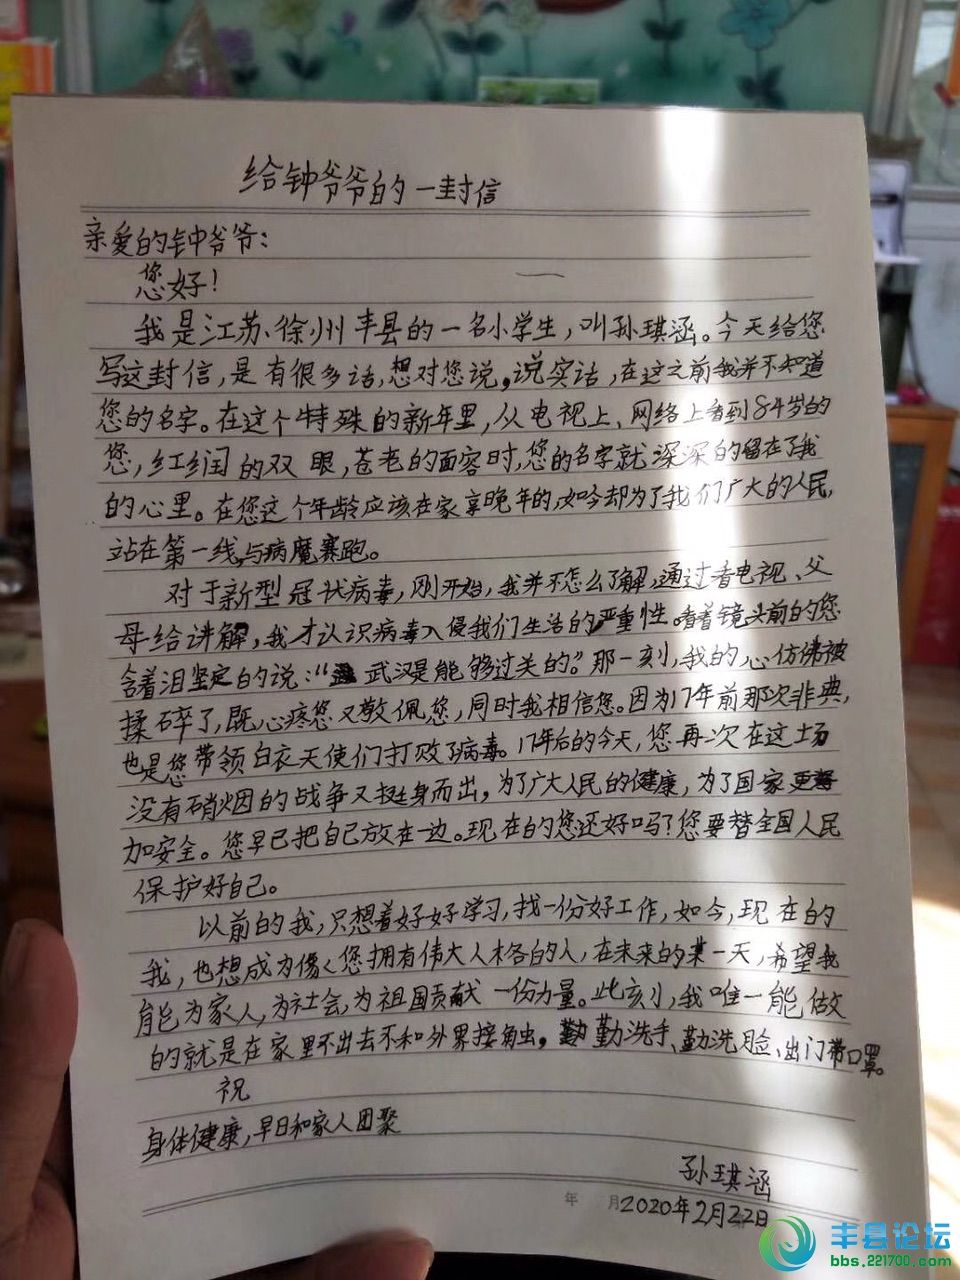 给钟爷爷的一封信
亲爱的钟爷爷：
您好！
我是江苏、徐州丰县的一名小学生，叫孙琪涵。今天给您
写这封信，是有很多话，想对您说，说实话，在这之前我并不知道
您的名字。在这个特殊的新年里，从电视上、网络上看到84岁的
您，红润的双眼，苍老的面容时，您的名字就深深的留在了我
的心里。在您这个年龄应该在家享晚年的，如今却为了我们广大的人民，
站在第一线，与病魔赛跑。
对于新型冠状病毒，刚开始，我并不怎么了解，通过看电视、父
母给讲解，我才认识病毒入侵我们生活的严重性。看着镜头前的您
含着泪坚定的说：“武汉是能够过关的。”那一刻，我的心仿佛被
揉碎了，既心疼您又敬佩您，同时我相信您。因为17年前那次非典，
也是您带领白衣天使们打败了病毒。17年后的今天，您再次在这场
没有硝烟的战争又挺身而出，为了广大人民的健康，为了国家更
加安全。您早已把自己放在一边。现在的您还好吗？您要替全国人民
保护好自己。
以前的我，只想着好好学习，找一份好工作，如今，现在的
我，也想成为像您拥有伟大人格的人，在未来的某一天，希望我
能为家人，为社会，为祖国贡献一份力量。此刻，我唯一能做
的就是在家里不出去不和外界接触，勤洗手、勤洗脸、出门带口罩。
祝
身体健康，早日和家人团聚
孙琪涵
年 月2020年2月22日
丰县论坛
bbs.221700.com